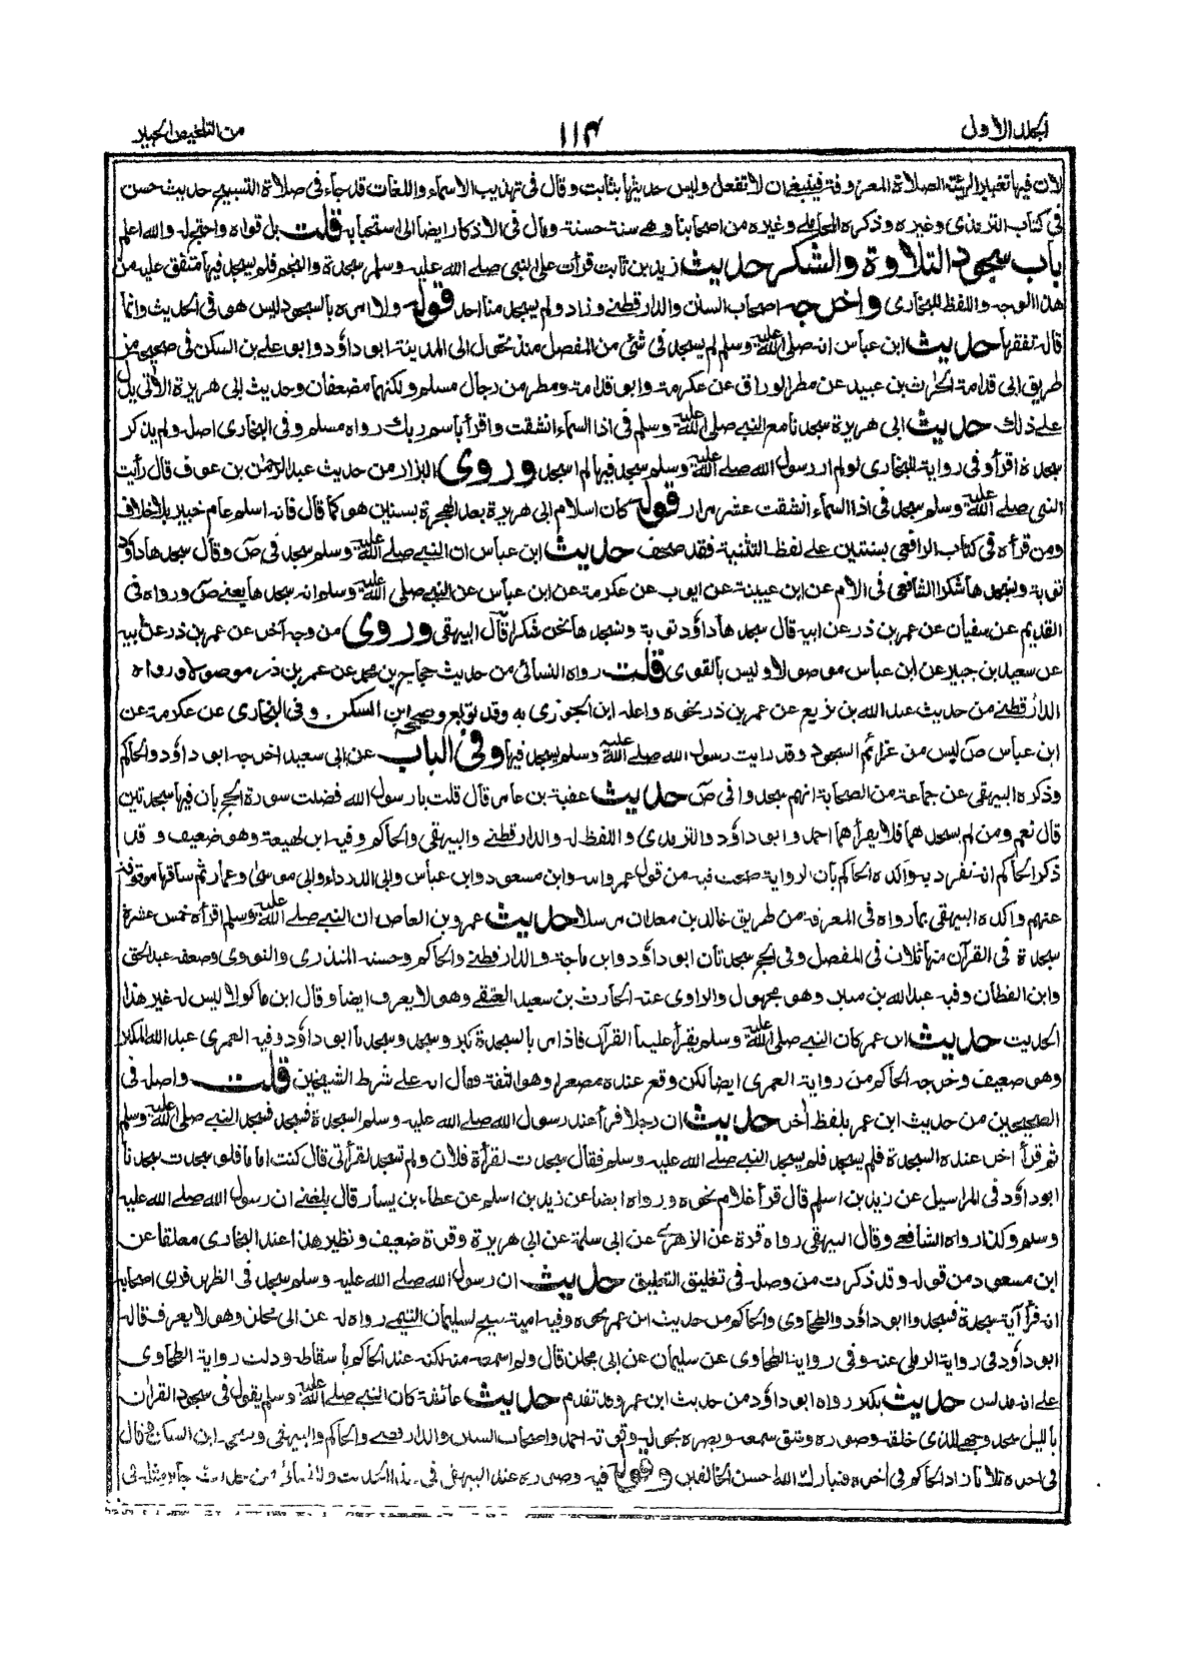 المجلد الاول
١١٤
من التلخيص الحبير
لان فيها تغيير الصلاة المعروفة فينبغى ان لا تفعل وليس حديثها بثابت وقال فى تهذيب الاسماء واللغات قد جاء فى صلاة التسبيح حديث حسن
فى كتاب الترمذى وغيره وذكره المحاملى وغيره من اصحابنا وهى سنة حسنة ومال فى الاذكار ايضا الى استحبابه قلت بل قواه واحتج له والله اعلم
باب سجود التلاوة والشكر حديث زيد بن ثابت قرأت على النبى صلى الله عليه وسلم سجدة والنجم فلم يسجد فيها متفق عليه من
هذا الوجه واللفظ للبخارى واخرجه اصحاب السنن والدارقطنى وزاد ولم يسجد منا احد قوله ولا امره بالسجود ليس هو فى الحديث وانما
قاله تفقها حديث ابن عباس انه صلى الله عليه وسلم لم يسجد فى شئ من المفصل منذ تحول الى المدينة ابو داؤد وابو على بن السكن فى صحيحه من
طريق ابى قدامة الحارث بن عبيد عن مطر الوراق عن عكرمة وابو قدامة ومطر من رجال مسلم ولكنهما مضعفان وحديث ابى هريرة الأتى يدل
على ذلك حديث ابى هريرة سجدنا مع النبى صلى الله عليه وسلم فى اذا السماء انشقت واقرأ باسم ربك رواه مسلم وفى البخارى اصله ولم يذكر
سجدة اقرأ وفى رواية للبخارى لو لم ار رسول الله صلى الله عليه وسلم سجد فيها لم اسجد وروى البزار من حديث عبد الرحمن بن عوف قال رأيت
النبى صلى الله عليه وسلم سجد فى اذا السماء انشقت عشر مرار قوله كان اسلام ابى هريرة بعد الهجرة بسنين هو كما قال فانه اسلم عام خيبر بلا خلاف
ومن قرأه فى كتاب الرافعى بسنتين على لفظ التثنية فقد صحف حديث ابن عباس ان النبى صلى الله عليه وسلم سجد فى ص وقال سجدها داؤد
توبة ونسجدها شكرا الشافعى فى الام عن ابن عيينة عن ايوب عن عكرمة عن ابن عباس عن النبى صلى الله عليه وسلم انه سجدها يعنى ص ورواه فى
القديم عن سفيان عن عمر بن ذر عن ابيه قال سجدها داؤد توبة ونسجدها نحن شكرا قال البيهقى وروى من وجه آخر عن عمر بن ذر عن ابيه
عن سعيد بن جبير عن ابن عباس موصولا وليس بالقوى قلت رواه النسائى من حديث حجاج بن محمد عن عمر بن ذر موصولا ورواه
الدارقطنى من حديث عبد الله بن بزيع عن عمر بن ذر نحوه واعله ابن الجوزى به وقد توبع وصححه ابن السكن وفى البخارى عن عكرمة عن
ابن عباس ص ليس من عزائم السجود وقد رايت رسول الله صلى الله عليه وسلم يسجد فيها وفى الباب عن ابى سعيد اخرجه ابو داؤد والحاكم
وذكره البيهقى عن جماعة من الصحابة انهم سجدوا فى ص حديث عقبة بن عامر قال قلت يا رسول الله فضلت سورة الحج بان فيها سجدتين
قال نعم ومن لم يسجدهما فلا يقرأهما احمد وابو داؤد والترمذى واللفظ له والدارقطنى والبيهقى والحاكم وفيه ابن لهيعة وهو ضعيف وقد
ذكر الحاكم انه تفرد به واكده الحاكم بان الرواية صحت فيه من قول عمر وابنه وابن مسعود وابن عباس وابى الدرداء وابى موسى وعمار ثم ساقها موقوفة
عنهم واكده البيهقى بما رواه فى المعرفة من طريق خالد بن معدان مرسلا حديث عمرو بن العاص ان النبى صلى الله عليه وسلم اقرأه خمس عشرة
سجدة فى القرآن منها ثلاث فى المفصل وفى الحج سجدتان ابو داؤد وابن ماجة والدارقطنى والحاكم وحسنه المنذرى والنووى وضعفه عبد الحق
وابن القطان وفيه عبد الله بن منين وهو مجهول والراوى عنه الحارث بن سعيد العتقى وهو لا يعرف ايضا وقال ابن ماكولا ليس له غير هذا
الحديث حديث ابن عمر كان النبى صلى الله عليه وسلم يقرأ علينا القرآن فاذا مر بالسجدة كبر وسجد وسجدنا ابو داؤد وفيه العمرى عبد الله المكبر
وهو ضعيف وخرجه الحاكم من رواية العمرى ايضا لكن وقع عنده مصغرا وهو الثقة فقال انه على شرط الشيخين قلت واصله فى
الصحيحين من حديث ابن عمر بلفظ أخر حديث ان رجلا قرأ عند رسول الله صلى الله عليه وسلم السجدة فسجد فسجد النبى صلى الله عليه وسلم
ثم قرأ اخر عنده السجدة فلم يسجد فلم يسجد النبى صلى الله عليه وسلم فقال سجدت لقرأة فلان ولم تسجد لقرأتى قال كنت اماما فلو سجدت سجدنا
ابو داؤد فى المراسيل عن زيد بن اسلم قال قرأ غلام نحوه ورواه ايضا عن زيد بن اسلم عن عطاء بن يسار قال بلغنى ان رسول الله صلى الله عليه
وسلم وكذا رواه الشافعى وقال البيهقى رواه قرة عن الزهرى عن ابى سلمة عن ابى هريرة وقرة ضعيف ونظير هذا عند البخارى معلقا عن
ابن مسعود من قوله وقد ذكرت من وصله فى تغليق التعليق حديث ان رسول الله صلى الله عليه وسلم سجد فى الظهر فرأى اصحابه
انه قرأ آية سجدة فسجدوا ابو داؤد والطحاوى والحاكم من حديث ابن عمر نحوه وفيه امية شيخ لسليمان التيمى رواه له عن ابى مجلز وهو لا يعرف قاله
ابو داؤد فى رواية الرملى عنه وفى رواية الطحاوى عن سليمان عن ابى مجلز قال ولم اسمعه منه لكنه عند الحاكم باسقاطه ودلت رواية الطحاوى
على انه مدلس حديث يكبر رواه ابو داؤد من حديث ابن عمر وقد تقدم حديث عائشة كان النبى صلى الله عليه وسلم يقول فى سجود القرأن
بالليل سجد وجهى للذى خلقه وصوره وشق سمعه وبصره بحوله وقوته احمد واصحاب السنن والدارقطنى والحاكم والبيهقى وصححه ابن السكن وقال
فى اخره ثلاثا زاد الحاكم فى اخره فتبارك الله احسن الخالقين وقوله فيه وصوره عند البيهقى فى هذا الحديث وللنسائى من حديث جابر مثله فى